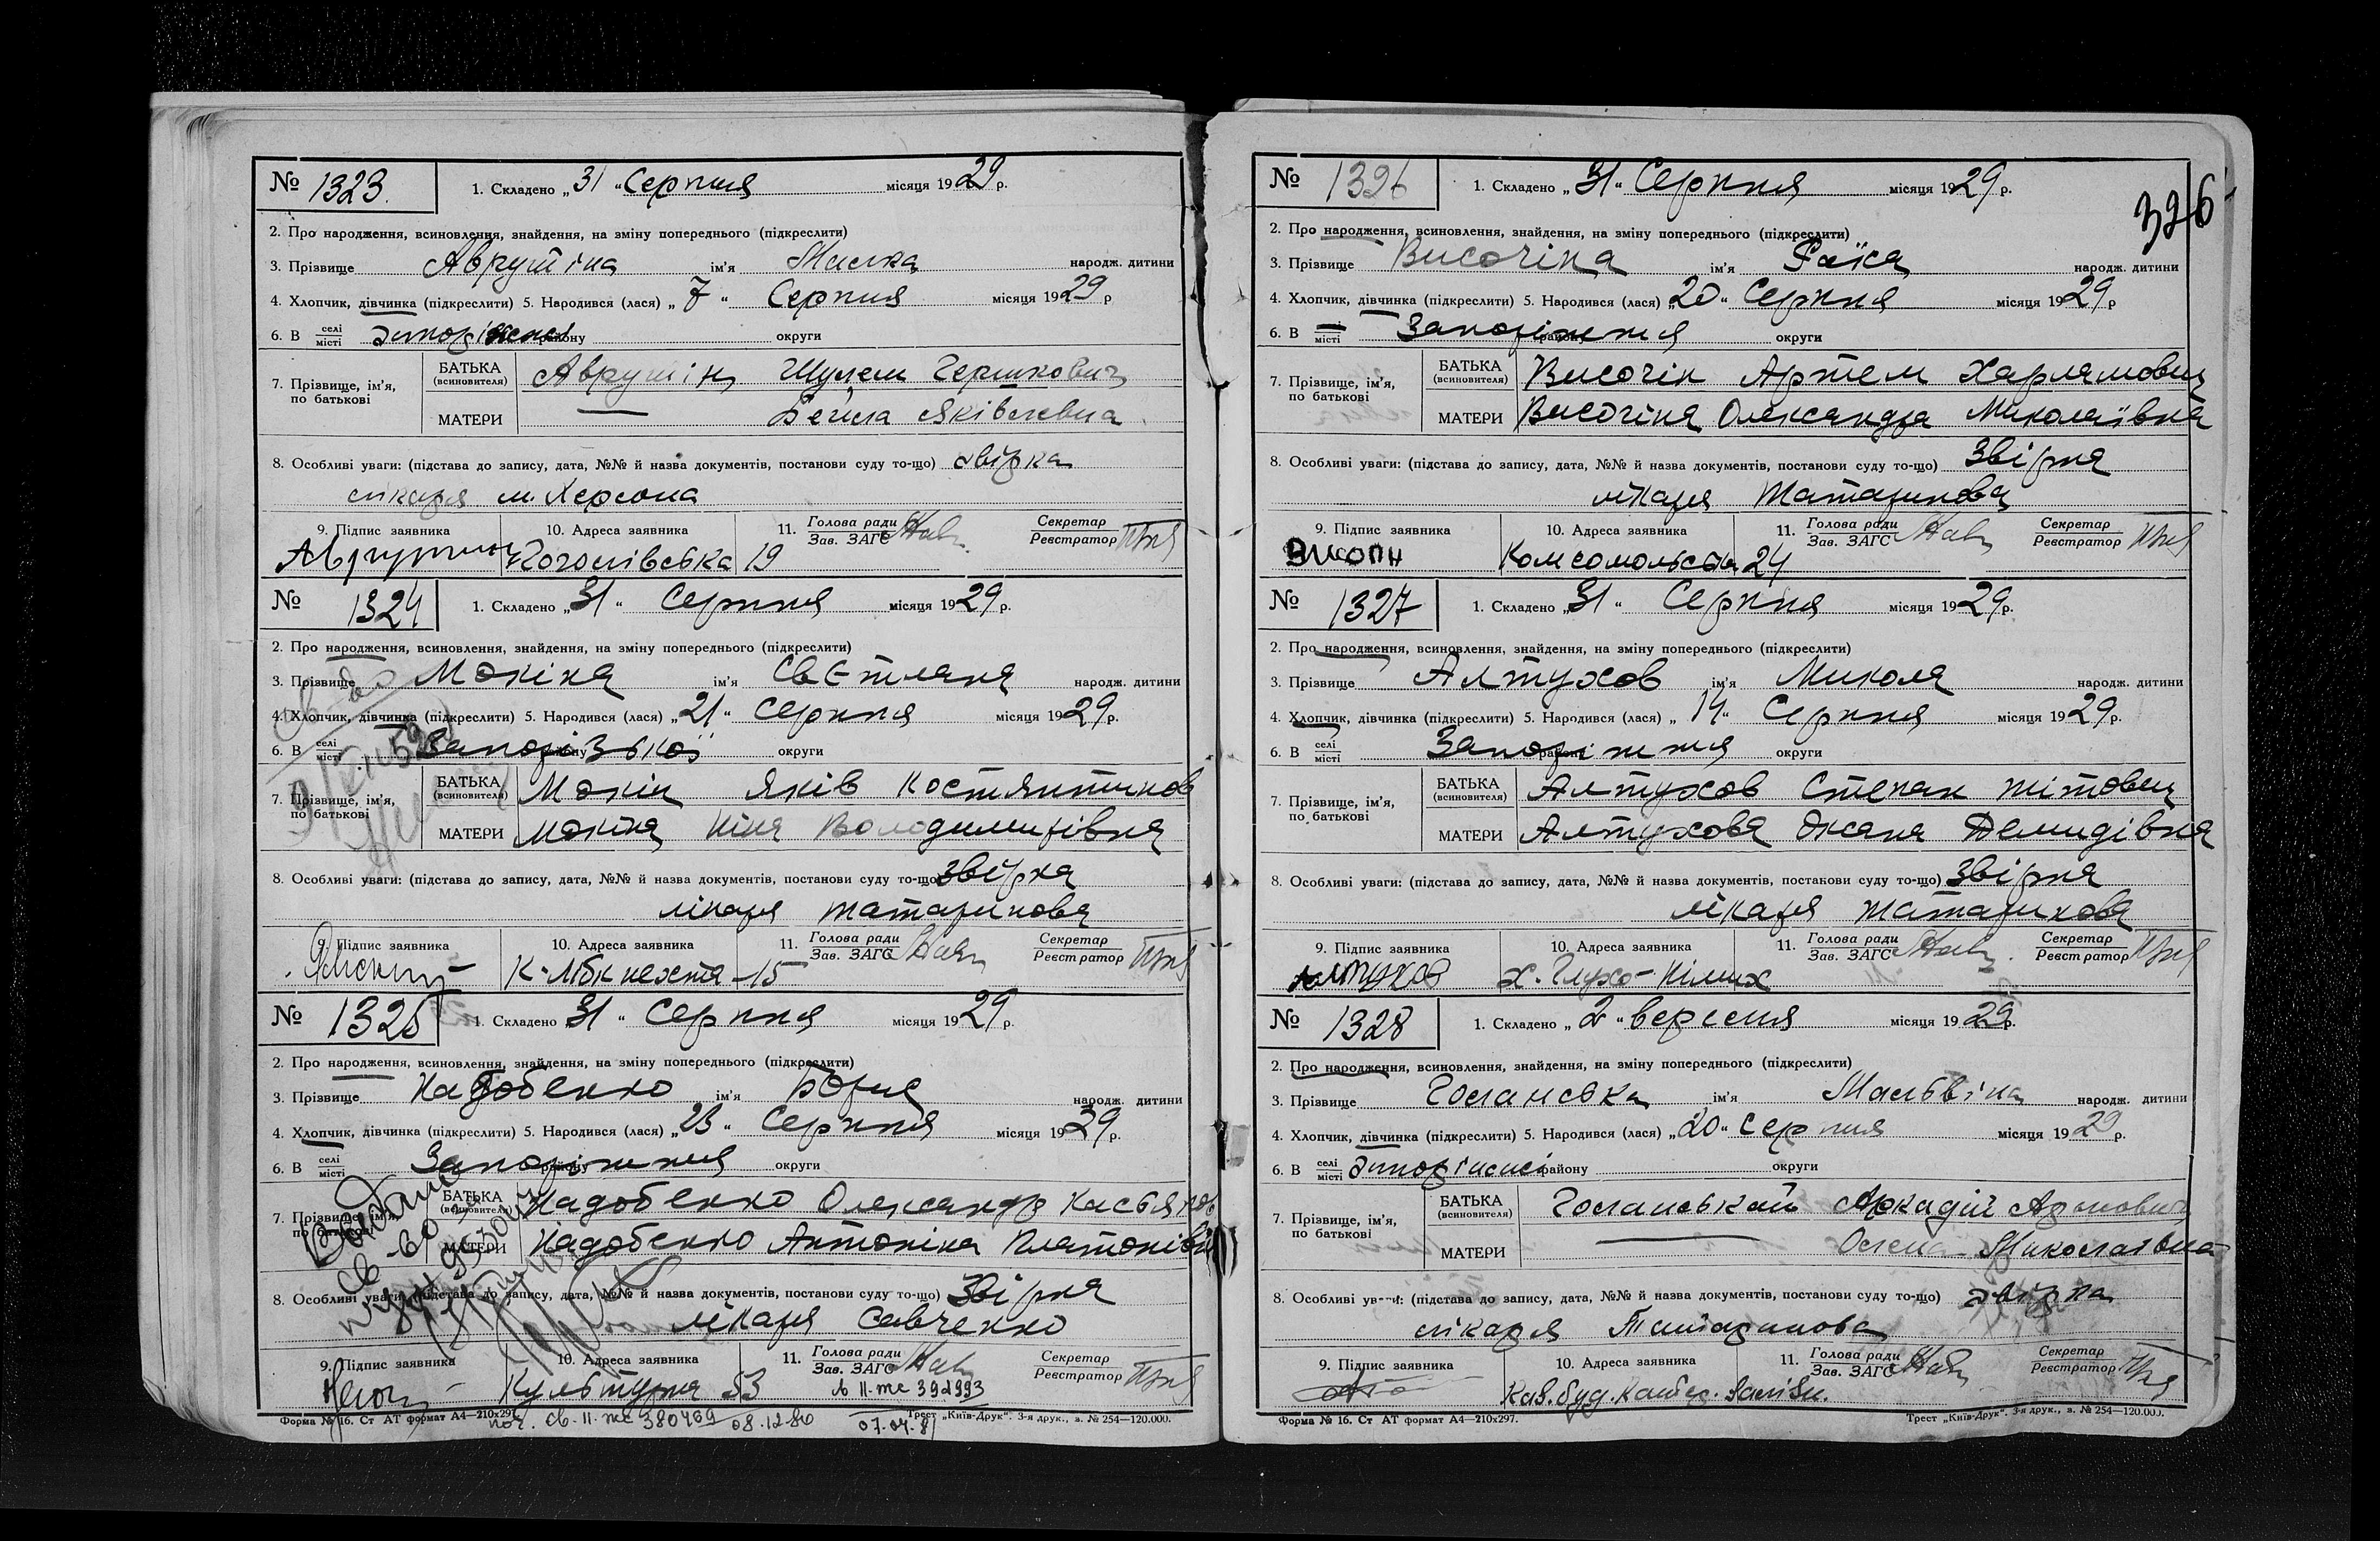 № 1323. 1. Складено „31“ Серпня місяця 1929 р.
2. Про народження, всиновлення, знайдення, на зміну попереднього (підкреслити)
3. Прізвище Аврутіна ім'я народж. дитини
4. Хлопчик, дівчинка (підкреслити) 5. Народився (лася) „7“ Серпня місяця 1929 р
6. В селі місті району округи
7. Прізвище, ім'я, по батькові
БАТЬКА (всиновителя) Аврутін Шулем Гершкович
МАТЕРИ — Бейла Яківлевна
8. Особливі уваги: (підстава до запису, дата, №№ й назва документів, постанови суду то-що) звірка
лікаря м. Херсона
9. Підпис заявника 10. Адреса заявника 11. Голова ради Зав. ЗАГС Секретар Реєстратор
19
№ 1324 1. Складено „31“ Серпня місяця 1929 р.
2. Про народження, всиновлення, знайдення, на зміну попереднього (підкреслити)
3. Прізвище Мокіна ім'я Светлана народж. дитини
4. Хлопчик, дівчинка (підкреслити) 5. Народився (лася) „21“ Серпня місяця 1929 р.
6. В селі місті Запорізької округи
7. Прізвище, ім'я, по батькові
БАТЬКА (всиновителя) Мокін Яків Костянтинов
МАТЕРИ Мокіна Ніна Володимирівна
8. Особливі уваги: (підстава до запису, дата, №№ й назва документів, постанови суду то-що) Звірка
лікаря Татаринова
9. Підпис заявника 10. Адреса заявника 11. Голова ради Зав. ЗАГС Секретар Реєстратор
К-Лібкнехта -15
№ 1325 1. Складено „31“ Серпня місяця 1929 р.
2. Про народження, всиновлення, знайдення, на зміну попереднього (підкреслити)
3. Прізвище Надобенко ім'я Борис народж. дитини
4. Хлопчик, дівчинка (підкреслити) 5. Народився (лася) „23“ Серпня місяця 1929 р.
6. В селі місті Запоріжжя району округи
7. Прізвище, ім'я, по батькові
БАТЬКА (всиновителя) Надобенко Олександр Касьянов
МАТЕРИ Надобенко Антоніна Платонівн
8. Особливі уваги: (підстава до запису, дата, №№ й назва документів, постанови суду то-що) Звірка
лікаря Савченко
9. Підпис заявника 10. Адреса заявника 11. Голова ради Зав. ЗАГС Секретар Реєстратор
Культурна 53 II-жс 392993
Форма № 16. Ст АТ формат А4—210х297. Трест „Київ-Друк“. 3-я друк., з. № 254—120.000.
пов. св. II-жс 380469 08.12.80 07.04.81
326
№ 1326 1. Складено „31“ Серпня місяця 1929 р.
2. Про народження, всиновлення, знайдення, на зміну попереднього (підкреслити)
3. Прізвище Височіна ім'я Раїса народж. дитини
4. Хлопчик, дівчинка (підкреслити) 5. Народився (лася) „20“ Серпня місяця 1929 р
6. В місті Запоріжжя району округи
7. Прізвище, ім'я, по батькові
БАТЬКА (всиновителя) Височін Артем Харлямович
МАТЕРИ Височіна Олександра Миколаївна
8. Особливі уваги: (підстава до запису, дата, №№ й назва документів, постанови суду то-що) Звірка
лікаря Татаринова
9. Підпис заявника 10. Адреса заявника 11. Голова ради Зав. ЗАГС Секретар Реєстратор
Комсомольська 24
№ 1327 1. Складено „31“ Серпня місяця 1929 р.
2. Про народження, всиновлення, знайдення, на зміну попереднього (підкреслити)
3. Прізвище Алтухов ім'я Микола народж. дитини
4. Хлопчик, дівчинка (підкреслити) 5. Народився (лася) „14“ Серпня місяця 1929 р.
6. В селі місті Запоріжжя району округи
7. Прізвище, ім'я, по батькові
БАТЬКА (всиновителя) Алтухов Степан Тітович
МАТЕРИ Алтухова Оксана Демидівна
8. Особливі уваги: (підстава до запису, дата, №№ й назва документів, постанови суду то-що) Звірка
лікаря Татаринова
9. Підпис заявника 10. Адреса заявника 11. Голова ради Зав. ЗАГС Секретар Реєстратор
Алтухов
№ 1328 1. Складено „2“ вересня місяця 1929 р.
2. Про народження, всиновлення, знайдення, на зміну попереднього (підкреслити)
3. Прізвище Голанська ім'я Мальвіна народж. дитини
4. Хлопчик, дівчинка (підкреслити) 5. Народився (лася) „20“ Серпня місяця 1929 р.
6. В селі місті району округи
7. Прізвище, ім'я, по батькові
БАТЬКА (всиновителя) Голанський Аркадій
МАТЕРИ — Олена Миколаївна
8. Особливі уваги: (підстава до запису, дата, №№ й назва документів, постанови суду то-що) звірка
лікаря Татаринова
9. Підпис заявника 10. Адреса заявника 11. Голова ради Зав. ЗАГС Секретар Реєстратор
Форма № 16. Ст АТ формат А4—210х297. Трест „Київ-Друк“. 3-я друк., з. № 254—120.000.